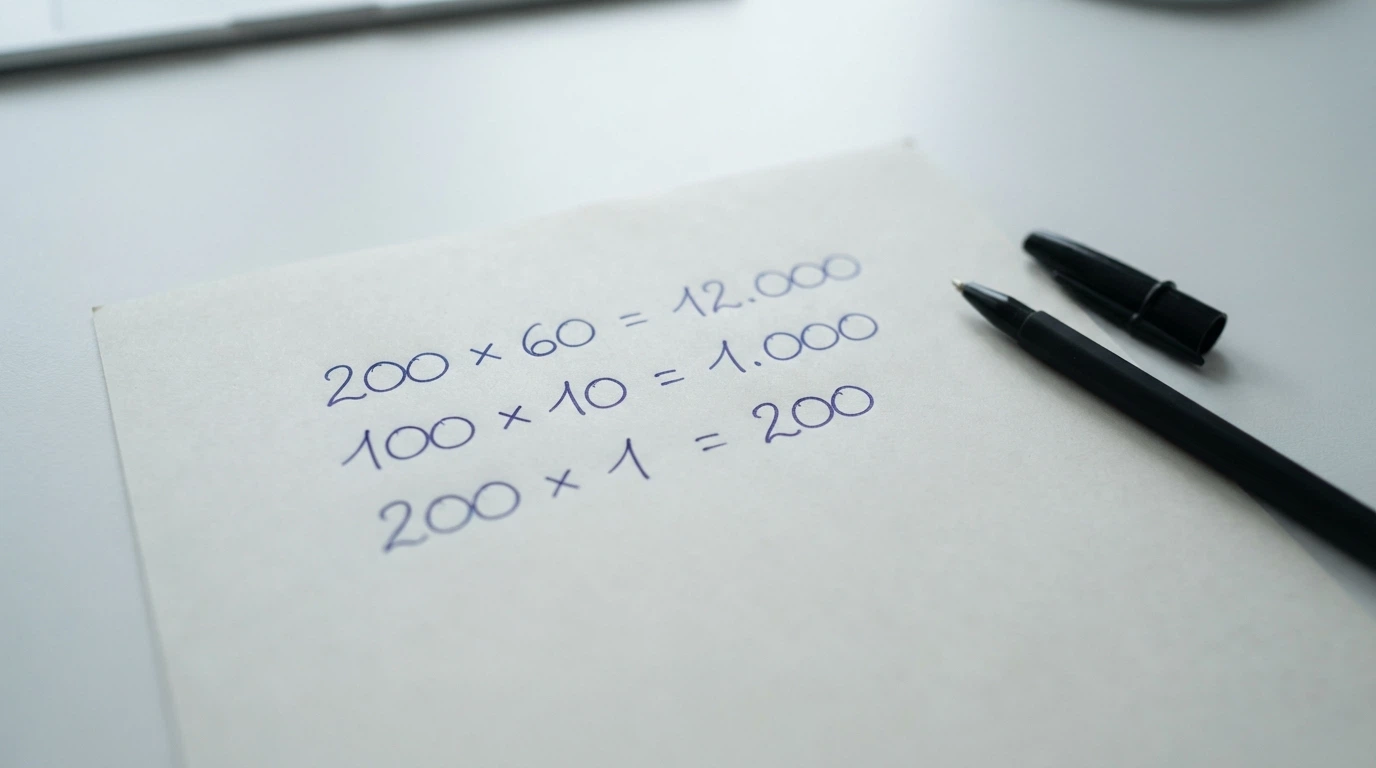 200 × 60 = 12.000
100 × 10 = 1.000
200 × 1 = 200